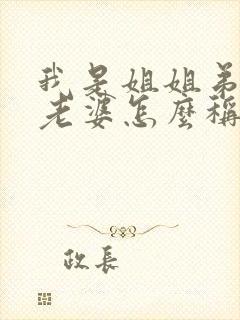 我是姐姐弟
老婆怎麼稱
政長